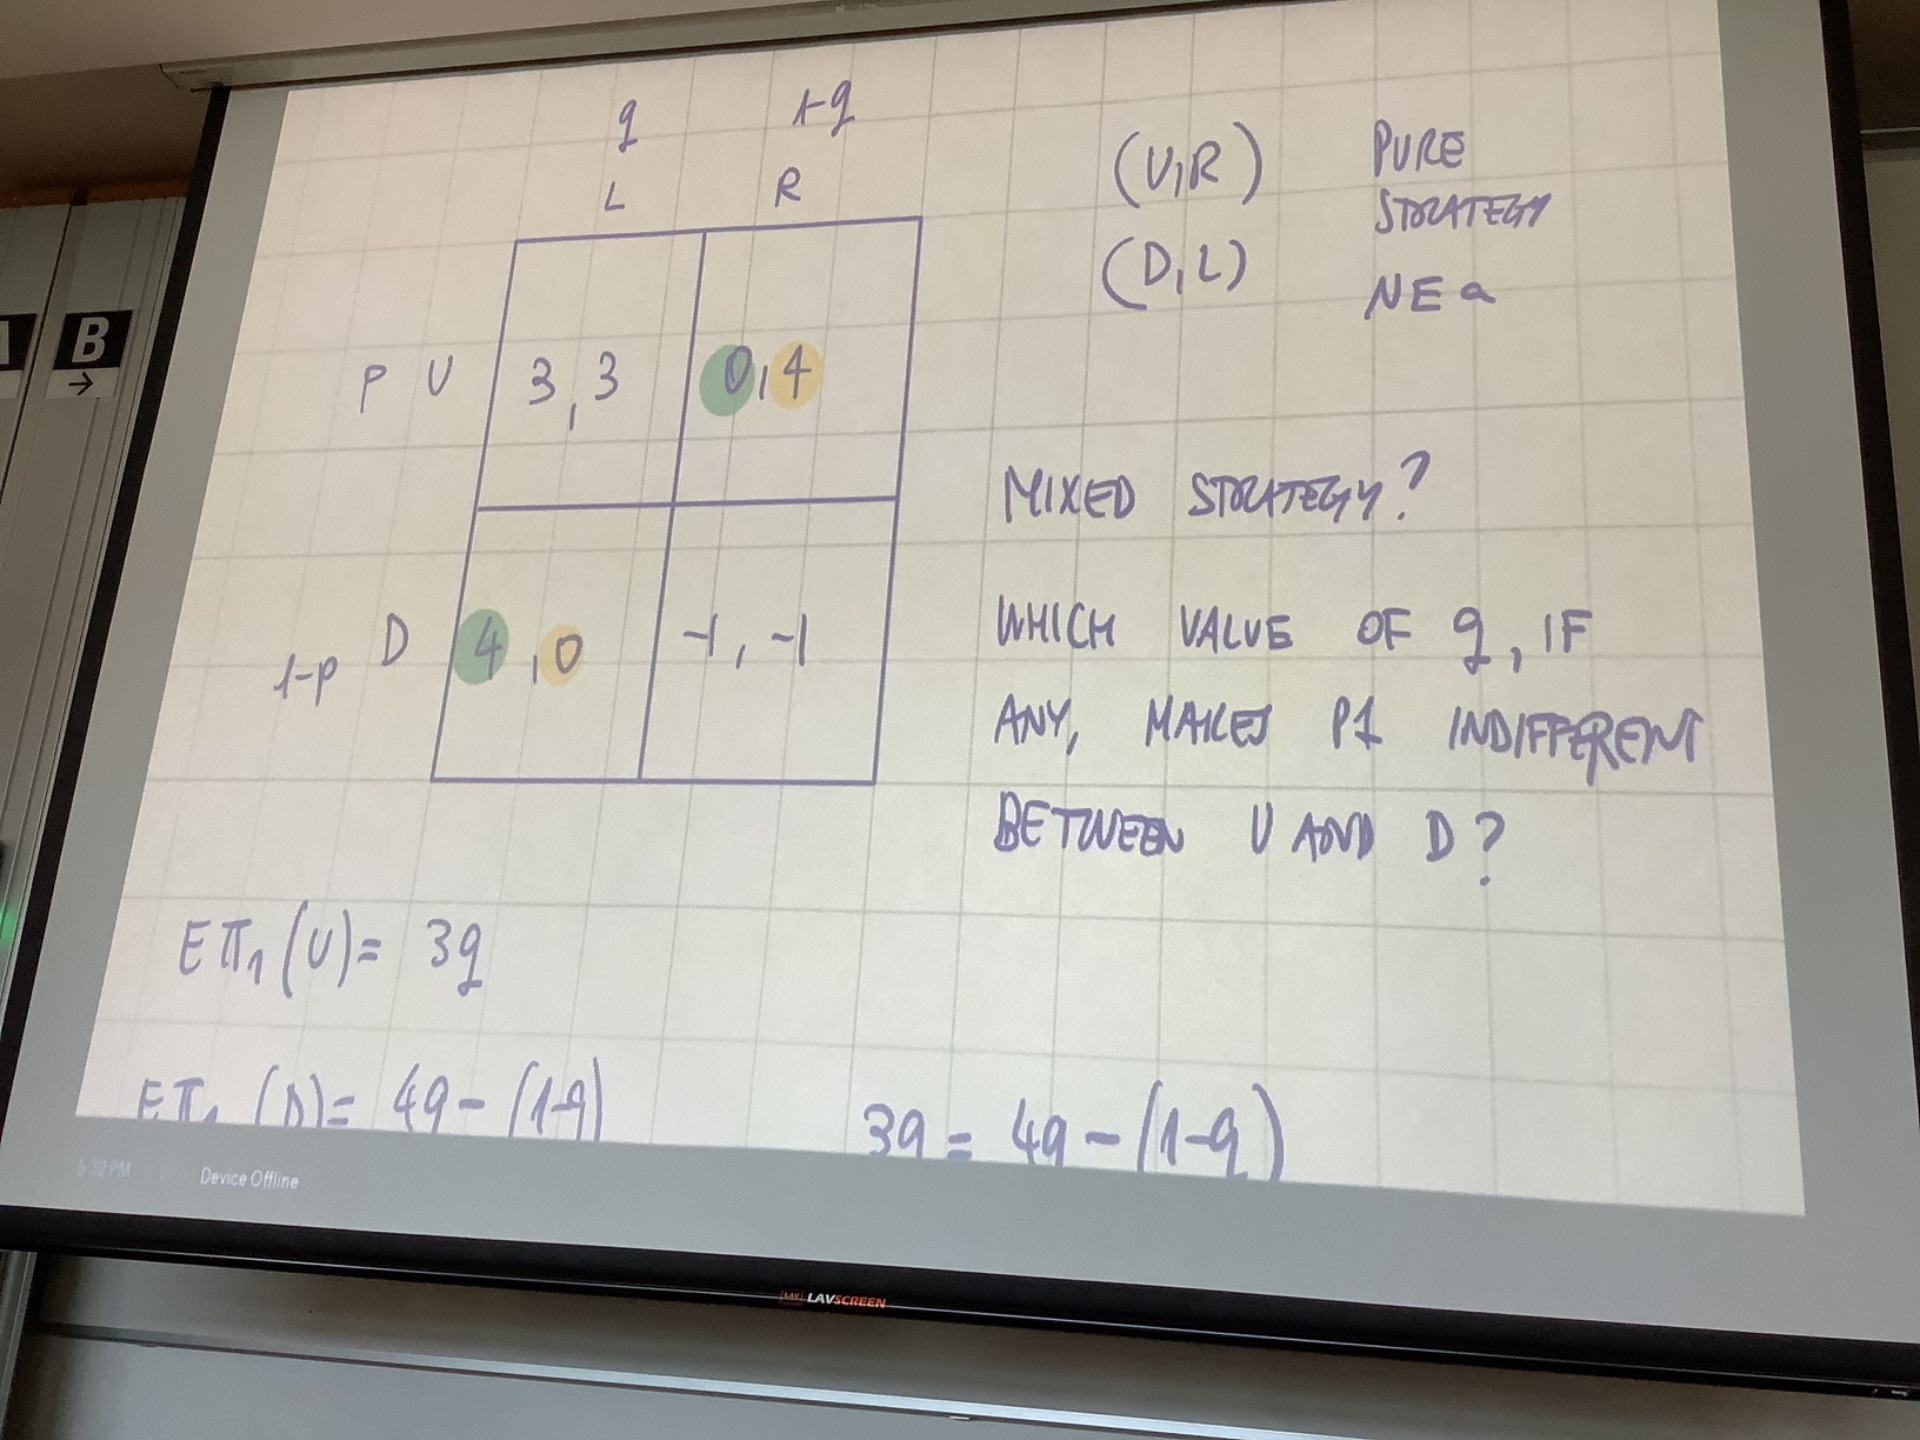 q 1-q
L R
(U,R) PURE
STRATEGY
(D,L) NEa
P U 3,3 0,4
MIXED STRATEGY?
1-p D 4,0 -1,-1
WHICH VALUE OF q, IF
ANY, MAKES P1 INDIFFERENT
BETWEEN U AND D?
Eπ₁(U)= 3q
Eπ₁(D)= 4q-(1-q) 3q = 4q-(1-q)
B
→
5:32 PM Device Offline
LAV LAVSCREEN